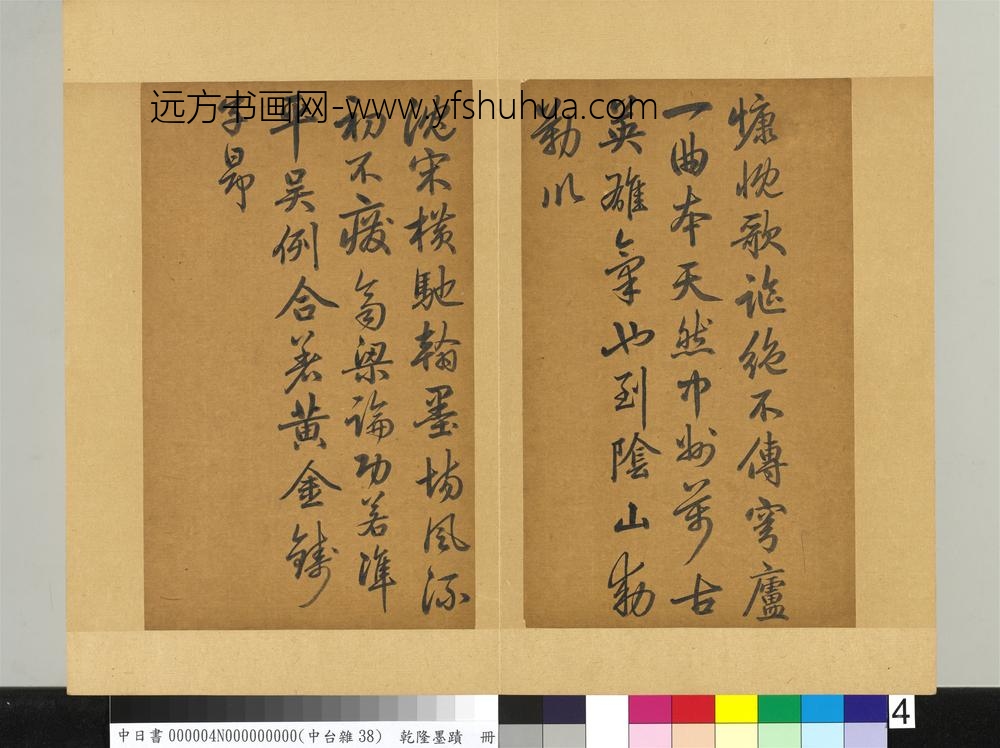 慷慨歌謠絕不傳穹廬
一曲本天然中州萬古
英雄氣也到陰山勅
勒川
沈宋橫馳翰墨場風流
初不廢齊梁論功若準
平吳例合著黃金鑄
子昂
远方书画网-www.yfshuhua.com
中日書 000004N000000000(中台雜 38) 乾隆墨蹟 冊
4